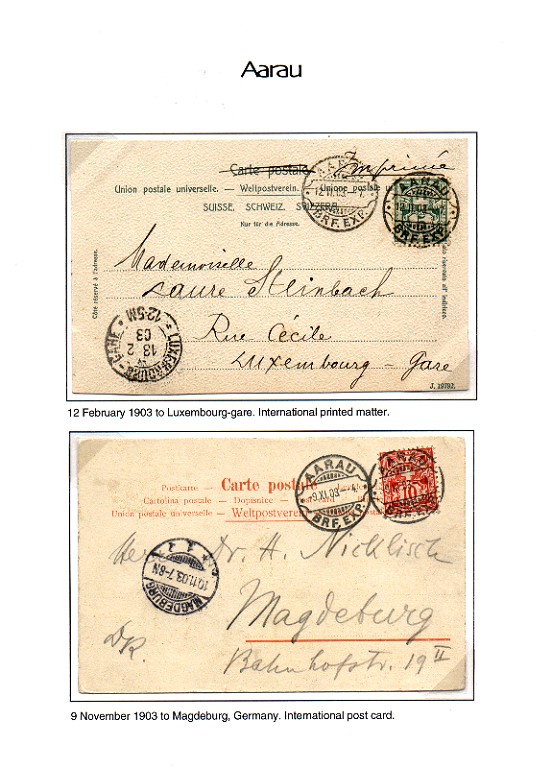 Aarau
Carte postale Imprimée
Union postale universelle. — Weltpostverein. — Unione postale u
SUISSE. SCHWEIZ. SVIZZERA.
Nur für die Adresse.
AARAU
12.II.03.–7.
BRF. EXP.
AARAU
12.II.03.
BRF. EXP.
Côté réservé à l'adresse.
Mademoiselle
Laure Steinbach
Rue Cécile
Luxembourg – Gare
LUXEMBOURG – GARE
13 2
03
12-5M
J. 19792.
12 February 1903 to Luxembourg-gare. International printed matter.
Postkarte — Carte postale
Cartolina postale — Dopisnice —
Union postale universelle — Weltpostverein
AARAU
9.XI.03.
BRF. EXP.
AARAU
10
Dr. H. Nicklisch
MAGDEBURG
10.11.03.7-8N
Magdeburg
Bahnhofstr. 19 II
9 November 1903 to Magdeburg, Germany. International post card.